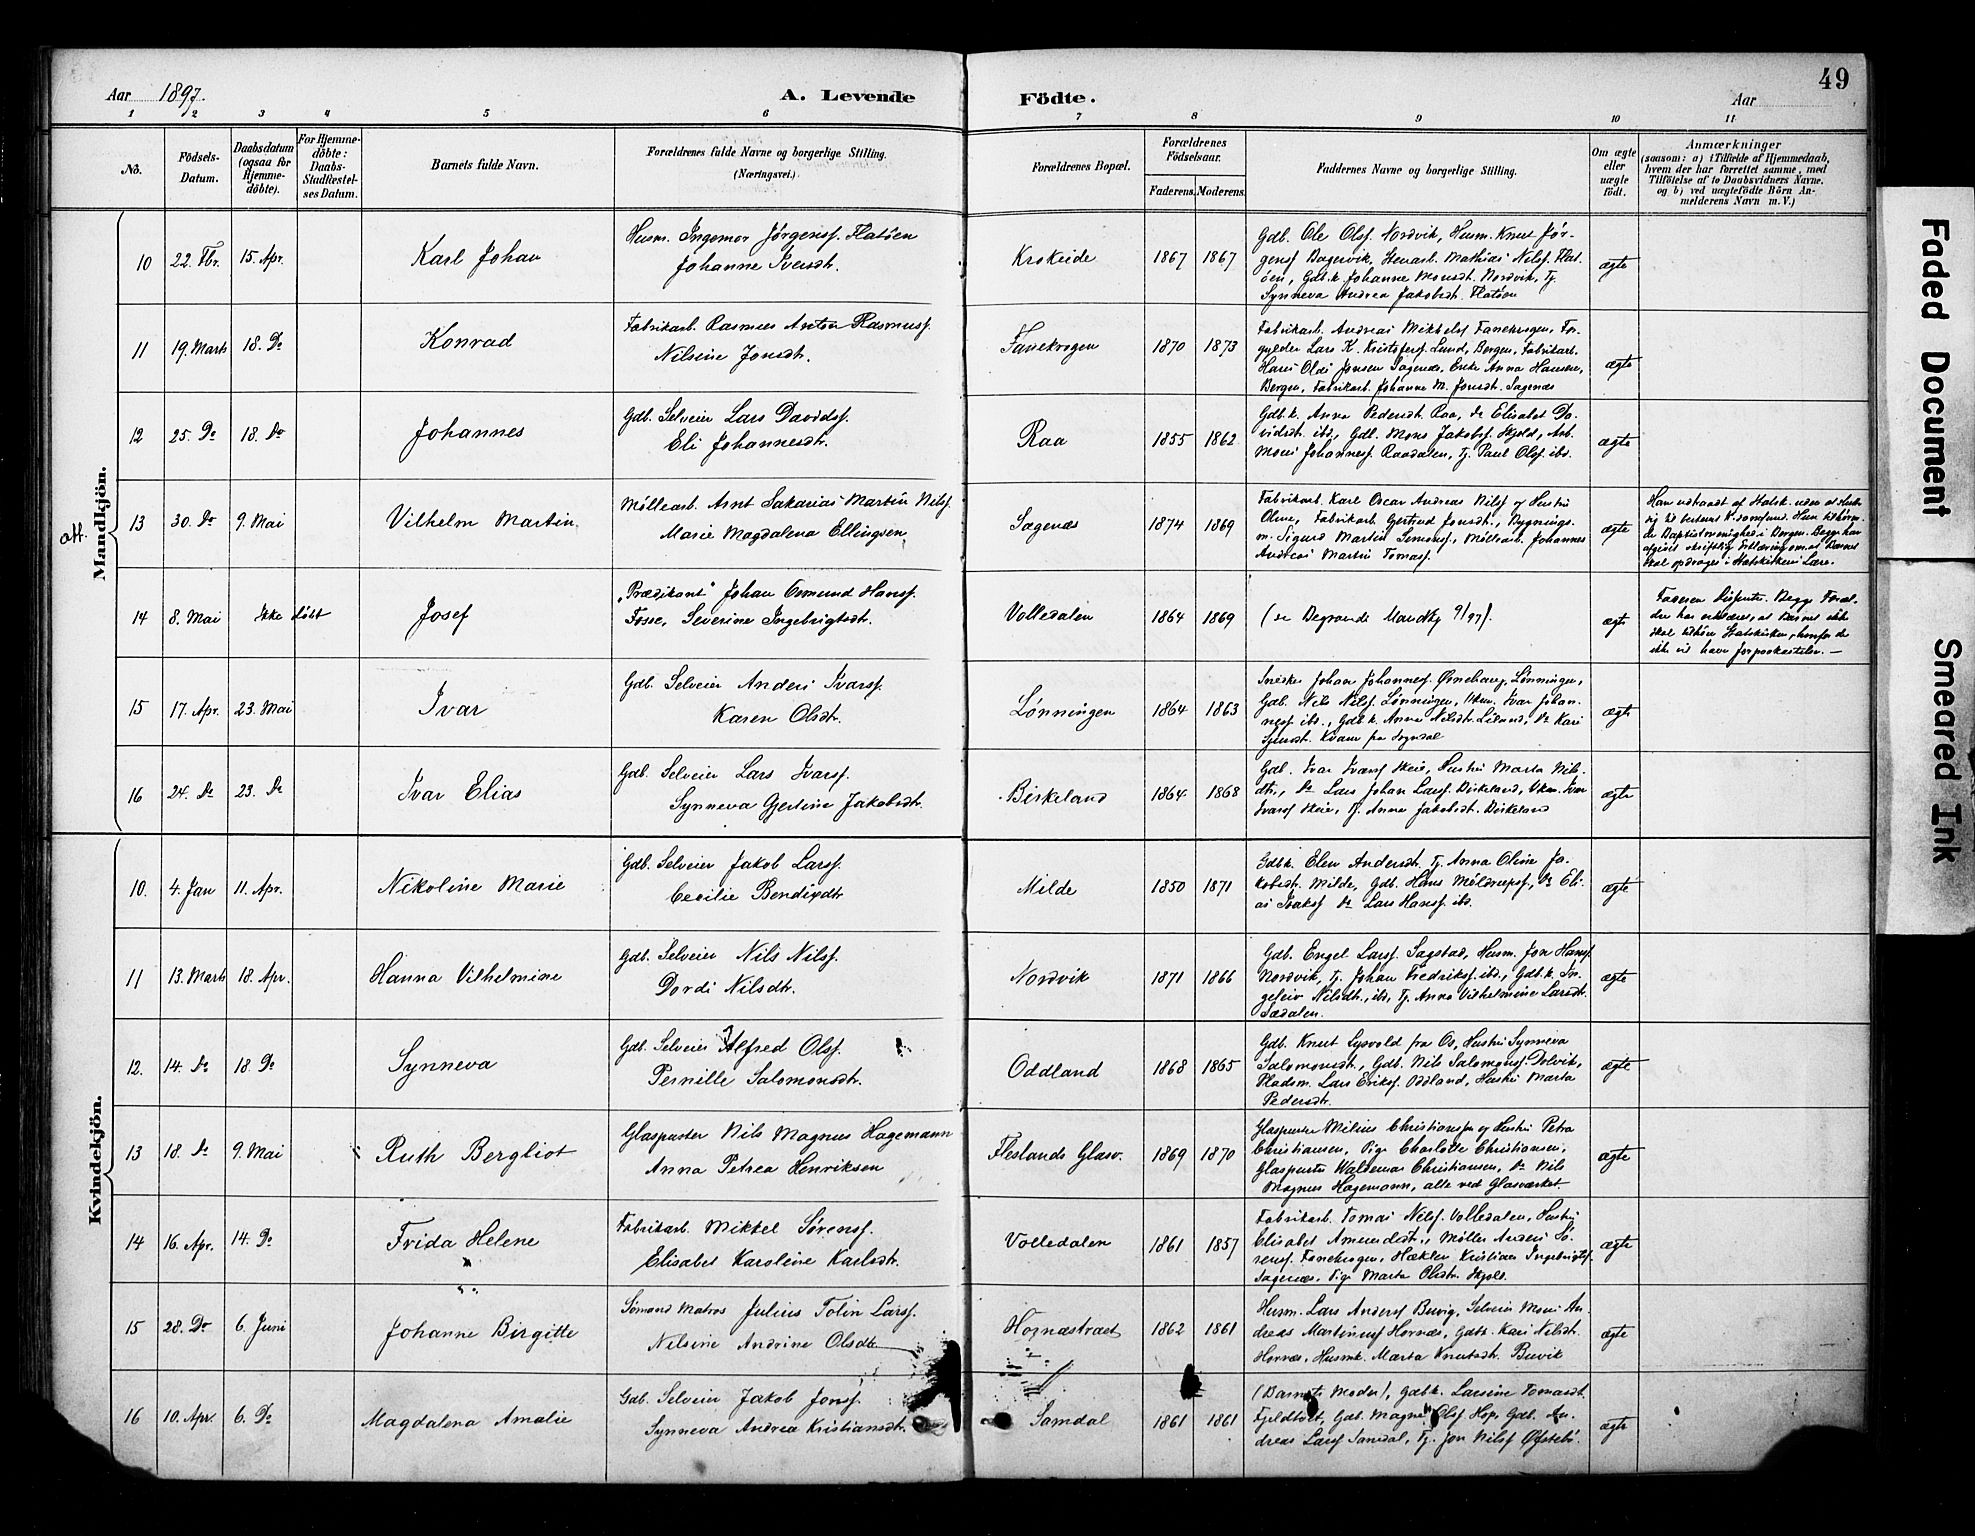 49
Aar 1897.
A. Levende Födte.
Aar
1 2 3 4 5 6 7 8 9 10 11
No.
Födsels-Datum.
Daabsdatum (ogsaa for Hjemmedöbte).
For Hjemmedöbte: Daabs-Stadfæstelses Datum.
Barnets fulde Navn.
Forældrenes fulde Navne og borgerlige Stilling.
(Næringsvei.)
Forældrenes Bopæl.
Forældrenes Födselsaar.
Faderens. Moderens.
Faddernes Navne og borgerlige Stilling.
Om ægte eller uægte födt.
Anmærkninger
(saasom: a) i Tilfælde af Hjemmedaab,
hvem der har forrettet samme, med
Tilföielse af to Daabsvidners Navne.
og b) ved uægtefödte Börn An-
melderens Navn m. V.)
Mandkjön.
10 22. Fbr. 15. Apr. Karl Johan
Husm. Ingemor Jørgensf. Flatøen
Johanne Iversdt.
Krokeide 1867 1867
Gdb. Ole Olsf. Nordvik, Husm. Knut Jør-
gensf Dagervik, Mathias Nilsf. Flat-
øen, Gdb.k. Johanne Monsdt. Nordvik, Tj.
Synneva Andrea Jakobsdt. Flatøen
ægte
11 19. Marts 18. Do Konrad
Fabrikarb. Rasmus Anton Rasmusf.
Nilsine Jonsdt.
Fanekrogen 1870 1873
Fabrikarb. Andreas Mikkelsf Fanekrogen, For-
gylder Lars K. Kristofersf. Lund, Bergen, Fabrikarb.
Hans Olai Jonsen Sagenæs, Enke Anna Hansen,
Bergen, Fabrikarb. Johanne M. Jonsdt. Sagenæs
ægte
12 25. Do 18. Do Johannes
Gdb. Selveier Lars Davidsf.
Eli Johannesdt.
Raa 1855 1862
Gdb.k. Anna Pedersdt. Raa, do Elisabet Da-
vidsdt. ibd., Gdb. Mons Jakobsf. Skjold, Arb.
Mons Johannesf. Raadalen, Tj. Paul Olsf. ibd.
ægte
att.
13 30. Do 9. Mai Vilhelm Martin
Møllearb. Arnt Sakarias Martin Nilsf.
Marie Magdalena Ellingsen
Sagenæs 1874 1869
Fabrikarb. Karl Oscar Andreas Nilsf og Hustru
Oline, Fabrikarb. Gertrud Jonsdt., Bygnings-
m. Sigurd Martin Simonsf., Møllearb. Johannes
Andreas Martin Tomasf.
ægte
Han udtraadt af Statsk. uden at slutte
sig til bestemt K.samfund. Hun tilhører
de Baptistmenighed i Bergen. Begge har
afgivet skriftlig Erklæring om at Barnet
skal opdrages i Statskirkens Lære.
14 8. Mai Ikke døbt Josef
„Prædikant" Johan Ormund Hansf.
Fosse, Severine Ingebrigtsdt.
Volledalen 1864 1869
(se Begravede Mandkj 9/97).
ægte
Faderen Dissenter. Begge Foræl-
dre har erklæret, at Barnet ikke
skal tilhøre Statskirken, hvorfor de
ikke vil have
15 17. Apr. 23. Mai Ivar
Gdb. Selveier Anders Ivarsf.
Karen Olsdt.
Lønningen 1864 1863
Snedker Johan Johannesf. Ørnehaug, Lønningen,
Gdb. Nils Nilsf. Lønningen, Ukm. Ivar Johan-
nesf ibd., Gdb.k. Anna Nilsdt. Liland, do Kari
Kvam fra Sogndal
ægte
16 24. Do 23. Do Ivar Elias
Gdb. Selveier Lars Ivarsf.
Synneva Gjertine Jakobsdt.
Birkeland 1864 1868
Gdb. Ivar Ivarsf Skeie, Hustru Marta Nils-
dt., do Lars Johan Larsf. Birkeland, Ukm. Ivar
Ivarsf Skeie, Tj. Anna Jakobsdt. Birkeland
ægte
Kvindekjön.
10. 4. Jan 11. Apr. Nikoline Marie
Gdb. Selveier Jakob Larsf.
Cecilie Bendixdt
Milde 1850 1871
Gdbk. Elen Andersdt. Tj. Anna Oline Ja-
kobsdt. Milde, Gdb. Hans Møldrupsf, do Eli-
as Isaksf do Lars Hansf. ibd.
ægte
11 13. Marts 18. Apr. Hanna Vilhelmine
Gdb. Selveier Nils Nilsf.
Dordi Nilsdt.
Nordvik 1871 1866
Gdb. Engel Larsf. Sagstad, Husm. Jon Hansf.
Nordvik, Tj. Johan Fredriksf. ibd., Gdb.k. In-
geleiv Nilsdt., ibd, Tj. Anna Vilhelmine Larsdt.
Sædalen.
ægte
12. 14. Do 18. Do Synneva
Gdb. Selveier Alfred Olsf.
Pernille Salomonsdt.
Oddland 1868 1865
Gdb. Knut Sysvold fra Os, Hustru Synneva
Salomonsdt., Gdb. Nils Salomonsf. Dolvik,
Pladsm. Lars Eriksf. Oddland, Hustru Marta
Pedersdt.
ægte
13 18. Do 9. Mai Ruth Bergliot
Glaspuster Nils Magnus Hagemann
Anna Petrea Henriksen
Fleslands Glasv. 1869 1870
Glaspuster Milius Christiansen og Hustru Petra
Christiansen, Pige Charlotte Christiansen,
Glaspuster Waldemar Christiansen, do Nils
Magnus Hagemann, alle ved Glasværket.
ægte
14 16. Apr. 14. Do Frida Helene
Fabrikarb. Mikkel Sørensf.
Elisabet Karoline Karlsdt.
Volledalen 1861 1857
Fabrikarb. Tomas Nilsf. Volledalen, Hustru
Elisabet Amundsdt., Møller Anders Sø-
rensf. Fanekrogen, Hækler Kristian Ingebrigtsf.
Sagenæs, Pige Marta Olsdt. Skjold.
ægte
15 28. Do 6. Juni Johanne Birgitte
Sømand Matros Julius Tolin Larsf.
Nilsine Andrine Olsdt
Hopnæstræet 1862 1861
Husm. Lars Andersf Buvig, Selveier Mons An-
dreas Martinusf Hornæs, Gdbk. Kari Nilsdt.
Hornæs, Husmk. Marta Knutsdt. Buvik
ægte
16 10. Apr. 6. Do Magdalena Amalie
Gdb. Selveier Jakob Jonsf.
Synneva Andrea Kristiansdt.
Samdal 1861 1861
(Barnets Moder), Gdbk. Larsine Tomasdt.
Fjeldtvet, Gdb. Magne Olsf Hop, Gdb. An-
dreas Larsf Samdal, Tj. Jon Nilsf Øfstebø.
ægte
Faded Document
Smeared Ink